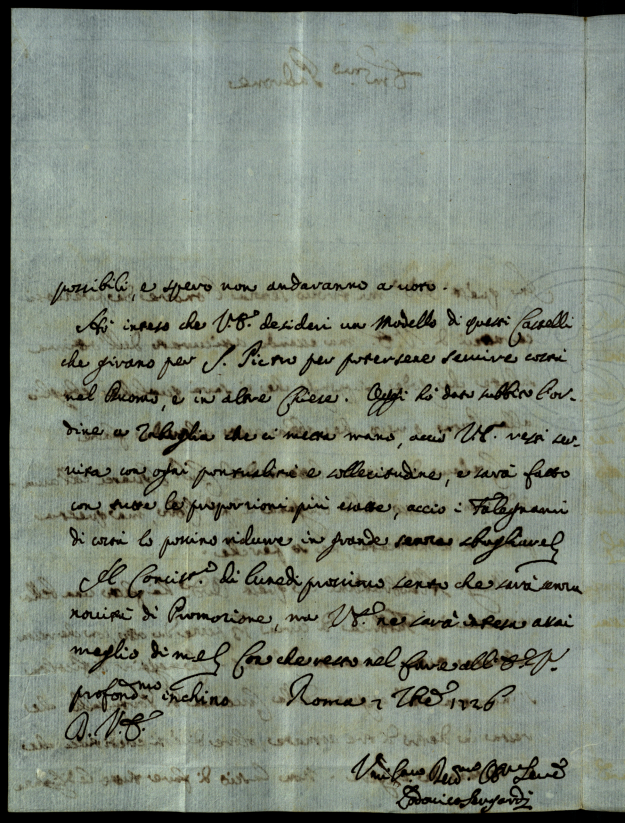 possibili, e spero non andaranno a voto.
Hò inteso che V.S. desideri un Modello di questi Castelli
che girano per S. Pietro per potersene servire costì
nel Duomo, e in altre Chiese. Oggi hò dato subbito l'or-
dine a Zabaglia che ci metta mano, acciò V.S. resti ser-
vita con ogni pontualità e sollecitudine, e sarà fatto
con tutte le proporzioni più esatte, acciò i Falegnami
di costì lo possino ridurre in grande senza sbagliare
Il Concist.o di lunedì prossimo sento che sarà senza
novità di Promozione, ma V.S. ne sarà intesa assai
meglio di me Con che resto nel fare all'
profond.mo inchino Roma 7 1726
D. V.S.
Lodovico Sergardi